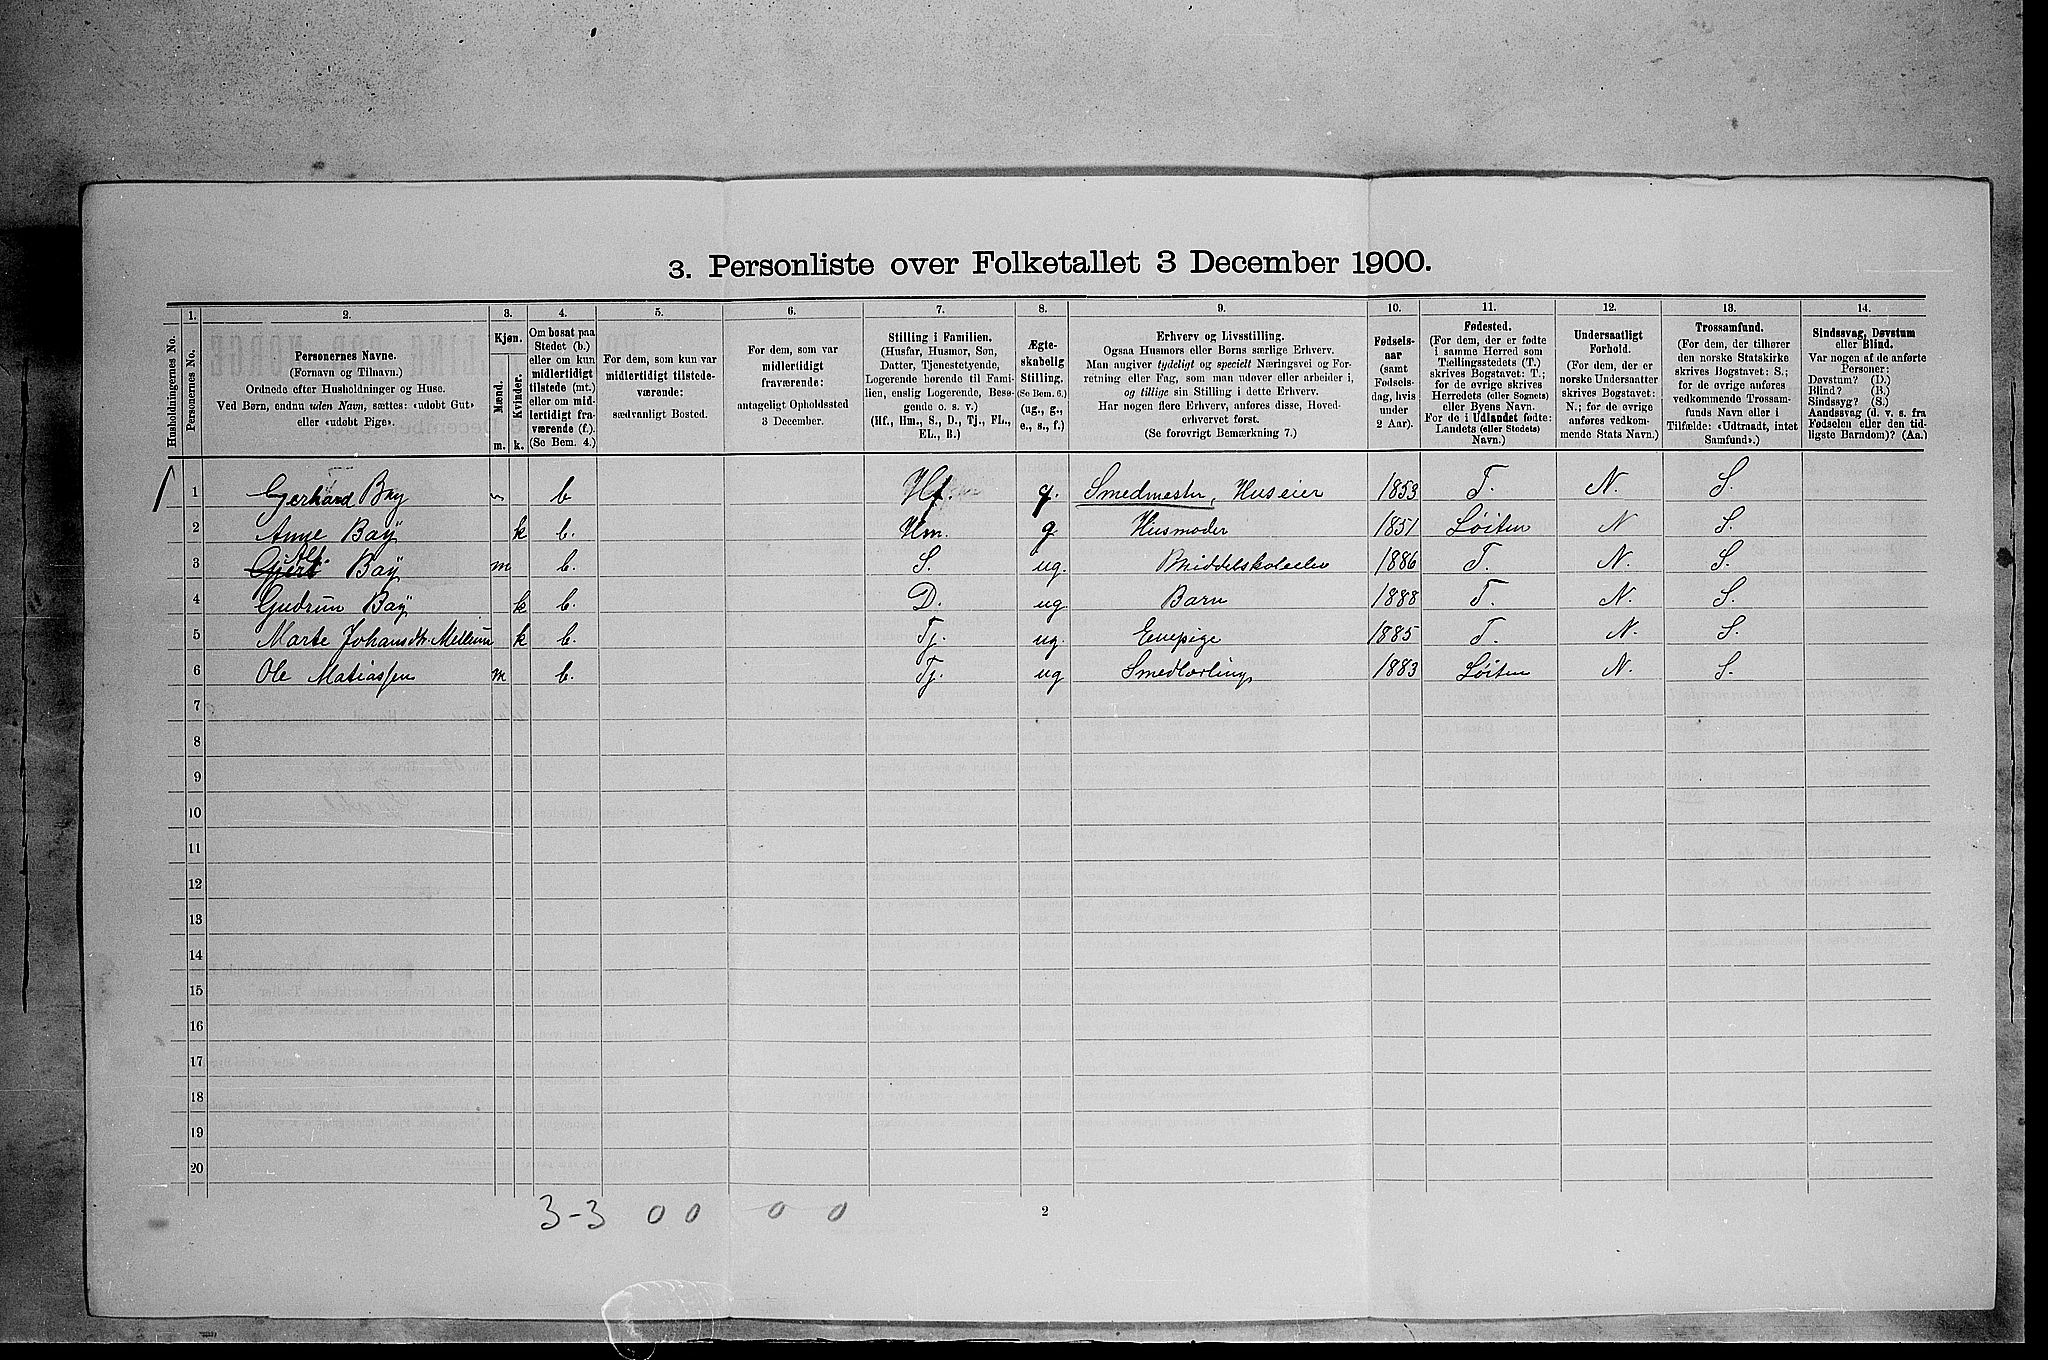 3. Personliste over Folketallet 3 December 1900.
1. 2. 3. 4. 5. 6. 7. 8. 9. 10. 11. 12. 13. 14.
Husholdningernes No.
Personernes No.
Personernes Navne.
(Fornavn og Tilnavn.)
Ordnede efter Husholdninger og Huse.
Ved Børn, endnu uden Navn, sættes: «udøbt Gut»
eller «udøbt Pige».
Kjøn.
Mænd.
Kvinder.
m. k.
Om bosat paa
Stedet (b.)
eller om kun
midlertidigt
tilstede (mt.)
eller om mid-
lertidigt fra-
værende (f.).
(Se Bem. 4.)
For dem, som kun var
midlertidigt tilstede-
værende:
sædvanligt Bosted.
For dem, som var
midlertidigt
fraværende:
antageligt Opholdssted
3 December.
Stilling i Familien.
(Husfar, Husmor, Søn,
Datter, Tjenestetyende,
Logerende hørende til Fami-
lien, enslig Logerende, Besø-
gende o. s. v.)
(Hf., Hm., S., D., Tj., FL.,
EL., B.)
Ægte-
skabelig
Stilling.
(Se Bem. 6.)
(ug., g.,
e., s., f.)
Erhverv og Livsstilling.
Ogsaa Husmors eller Børns særlige Erhverv.
Man angiver tydeligt og specielt Næringsvei og For-
retning eller Fag, som man udøver eller arbeider i,
og tillige sin Stilling i dette Erhverv.
Har nogen flere Erhverv, anføres disse, Hoved-
erhvervet først.
(Se forøvrigt Bemærkning 7.)
Fødsels-
aar
(samt
Fødsels-
dag, hvis
under
2 Aar).
Fødested.
(For dem, der er fødte
i samme Herred som
Tællingsstedets (T.)
skrives Bogstavet: T.;
for de øvrige skrives
Herredets (eller Sognets)
eller Byens Navn.
For de i Udlandet fødte:
Landets (eller Stedets)
Navn.)
Undersaatligt
Forhold.
(For dem, der er
norske Undersaatter
skrives Bogstavet:
N.; for de øvrige
anføres vedkom-
mende Stats Navn.)
Trossamfund.
(For dem, der tilhører
den norske Statskirke
skrives Bogstavet: S.;
for de øvrige anføres
vedkommende Trossam-
funds Navn eller i
Tilfælde: «Udtraadt, intet
Samfund».)
Sindssvag, Døvstum
eller Blind.
Var nogen af de anførte
Personer:
Døvstum? (D.)
Blind? (B.)
Sindssyg? (S.)
Aandssvag (d. v. s. fra
Fødselen eller den tid-
ligste Barndom)? (Aa.)
1 1 Gerhard Bay m b Hf. g. Smedmester, Huseier 1853 T. N. S.
2 Anne Baÿ k b. Hm. g Husmoder 1851 Löiten N S.
Alf
3 Gjert Baÿ m b. S. ug. Middelskoleelev 1886 T. N. S.
4 Gudrun Baÿ k b. D. ug Barn 1888 T. N. S.
5 Marte Johansdtr. Mellum k b. Tj. ug. Enepige 1885 T. N. S.
6 Ole Matiassen m b. Tj. ug Smedlærling 1883 Löiten N. S.
7
8
9
10
11
12
13
14
15
16
17
18
19
20
3-3 0 0 0 0
2